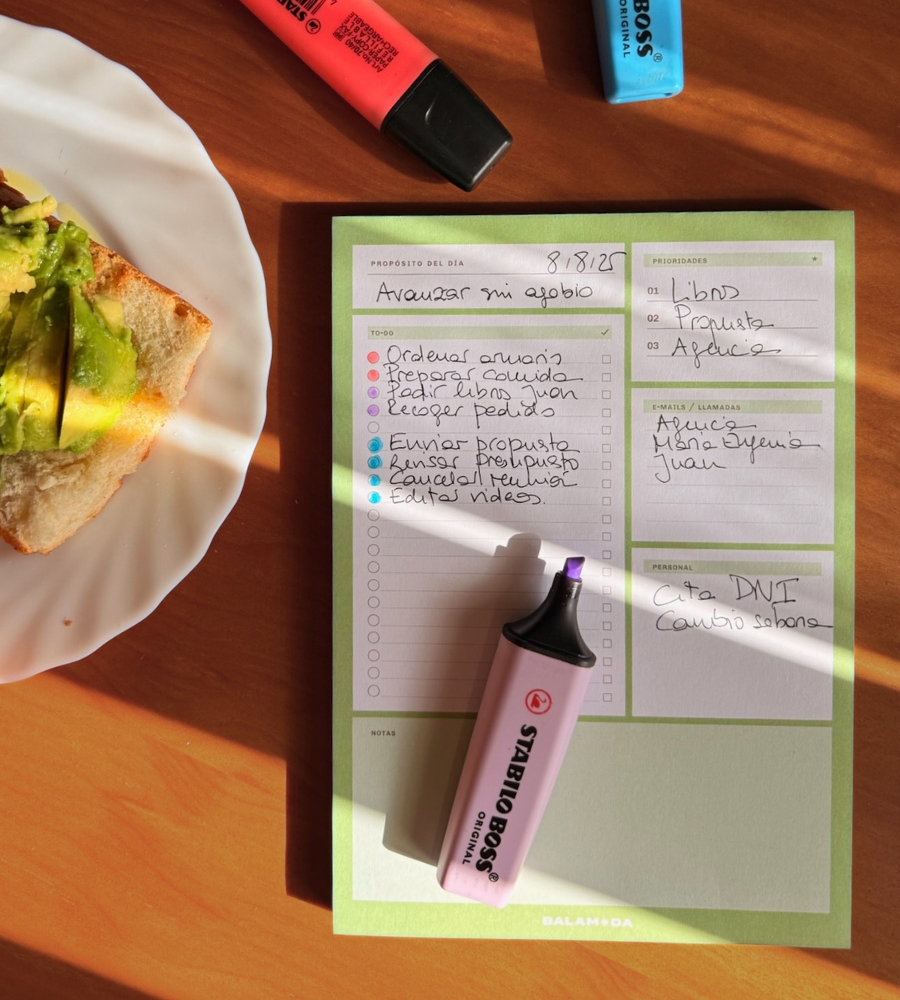 STABILO
Art. No. 70/40
PAPER COPY FAX
REFILLABLE
RECHARGEABLE
BOSS®
ORIGINAL
PROPÓSITO DEL DÍA
8/8/25
Avanzar sin agobio
TO-DO
Ordenar armario
Preparar comida
Pedir libros Juan
Recoger pedido
Enviar propuesta
Revisar presupuesto
Cancelar reunión
Editar videos.
PRIORIDADES
01 Libros
02 Propuesta
03 Agencia
E-MAILS / LLAMADAS
Agencia
Maria Eugenia
Juan
PERSONAL
Cita DNI
Cambio sabana
NOTAS
STABILO BOSS®
ORIGINAL
BALAMODA